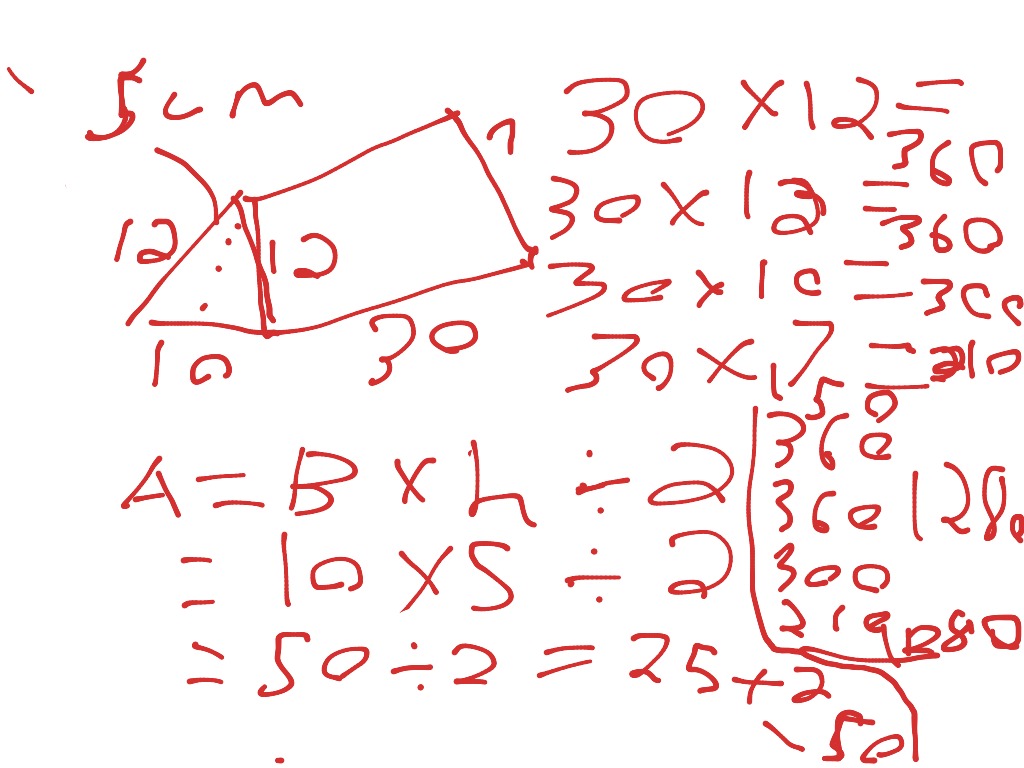 5 cm
7
12
12
10
30
30 × 12 = 360
30 × 12 = 360
30 × 10 = 300
30 × 7 = 210
A = B × h ÷ 2
= 10 × 5 ÷ 2
= 50 ÷ 2 = 25 × 2
50
50
360
360
300
210
1280
1280